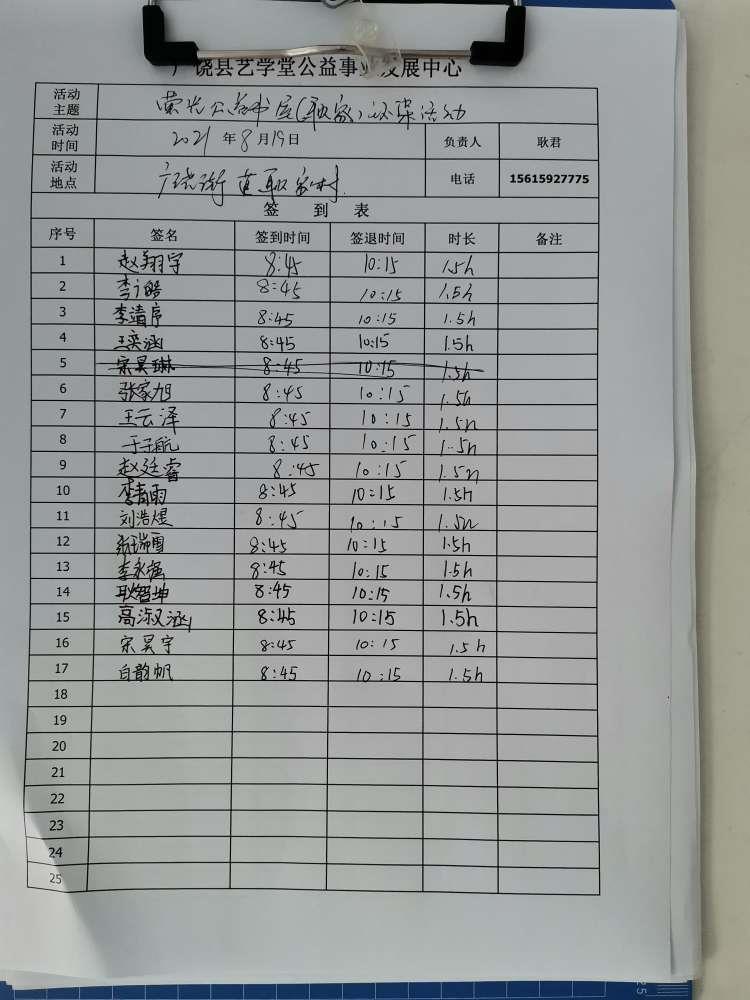 广饶县艺学堂公益事业发展中心
活动主题 荣光公益书屋(耿家)
活动时间 2021年8月19日 负责人 耿君
活动地点 广饶街道耿家村 电话 15615927775
签 到 表
序号 签名 签到时间 签退时间 时长 备注
1 赵翔宇 8:45 10:15 1.5h
2 李 皓 8:45 10:15 1.5h
3 李靖序 8:45 10:15 1.5h
4 王奕涵 8:45 10:15 1.5h
5 宋昊琳 8:45 10:15 1.5h
6 张家旭 8:45 10:15 1.5h
7 王云泽 8:45 10:15 1.5h
8 于子航 8:45 10:15 1.5h
9 赵廷睿 8:45 10:15 1.5h
10 李青雨 8:45 10:15 1.5h
11 刘浩煜 8:45 10:15 1.5h
12 张瑞雪 8:45 10:15 1.5h
13 李永强 8:45 10:15 1.5h
14 耿智坤 8:45 10:15 1.5h
15 高淑涵 8:45 10:15 1.5h
16 宋昊宇 8:45 10:15 1.5h
17 白韵帆 8:45 10:15 1.5h
18
19
20
21
22
23
24
25